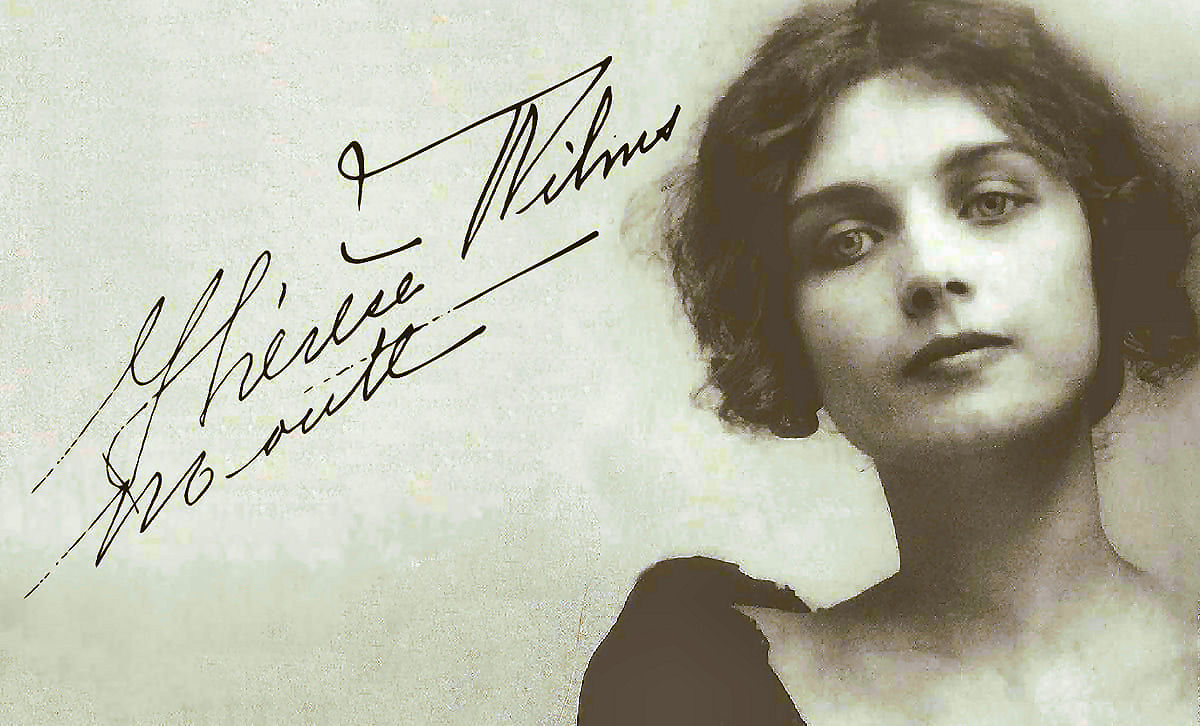 Thérèse Wilms
Montt